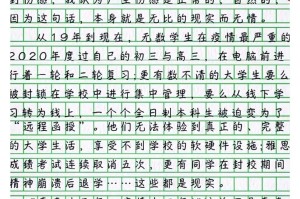 因为这句话，本身就是无比的现实而无情。
从19年到现在，无数学生在疫情最严重的
2020年度过自己的初三与高三，在电脑前进
行着一轮和二轮复习；更有数不清的大学生要么
被封锁在学校中进行集中管理，要么从线下学
习转为线上，一个个全日制本科生被迫变为了
“远程函授”。他们无法体验到真正的、完整
的大学生活，享受不到学校的软硬件设施；雅思
成绩考试连续取消立次，更有同学在封校期间
精神崩溃后退学……这些都是现实。